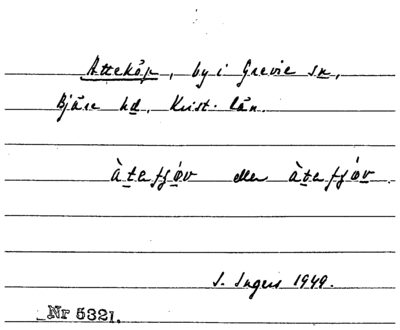 Attekôp, by i Grevie sn,
Bjäre hd, Krist. län.
àtafjǿv eller àtafjǿv
S. Ingers 1949.
Nr 5321.